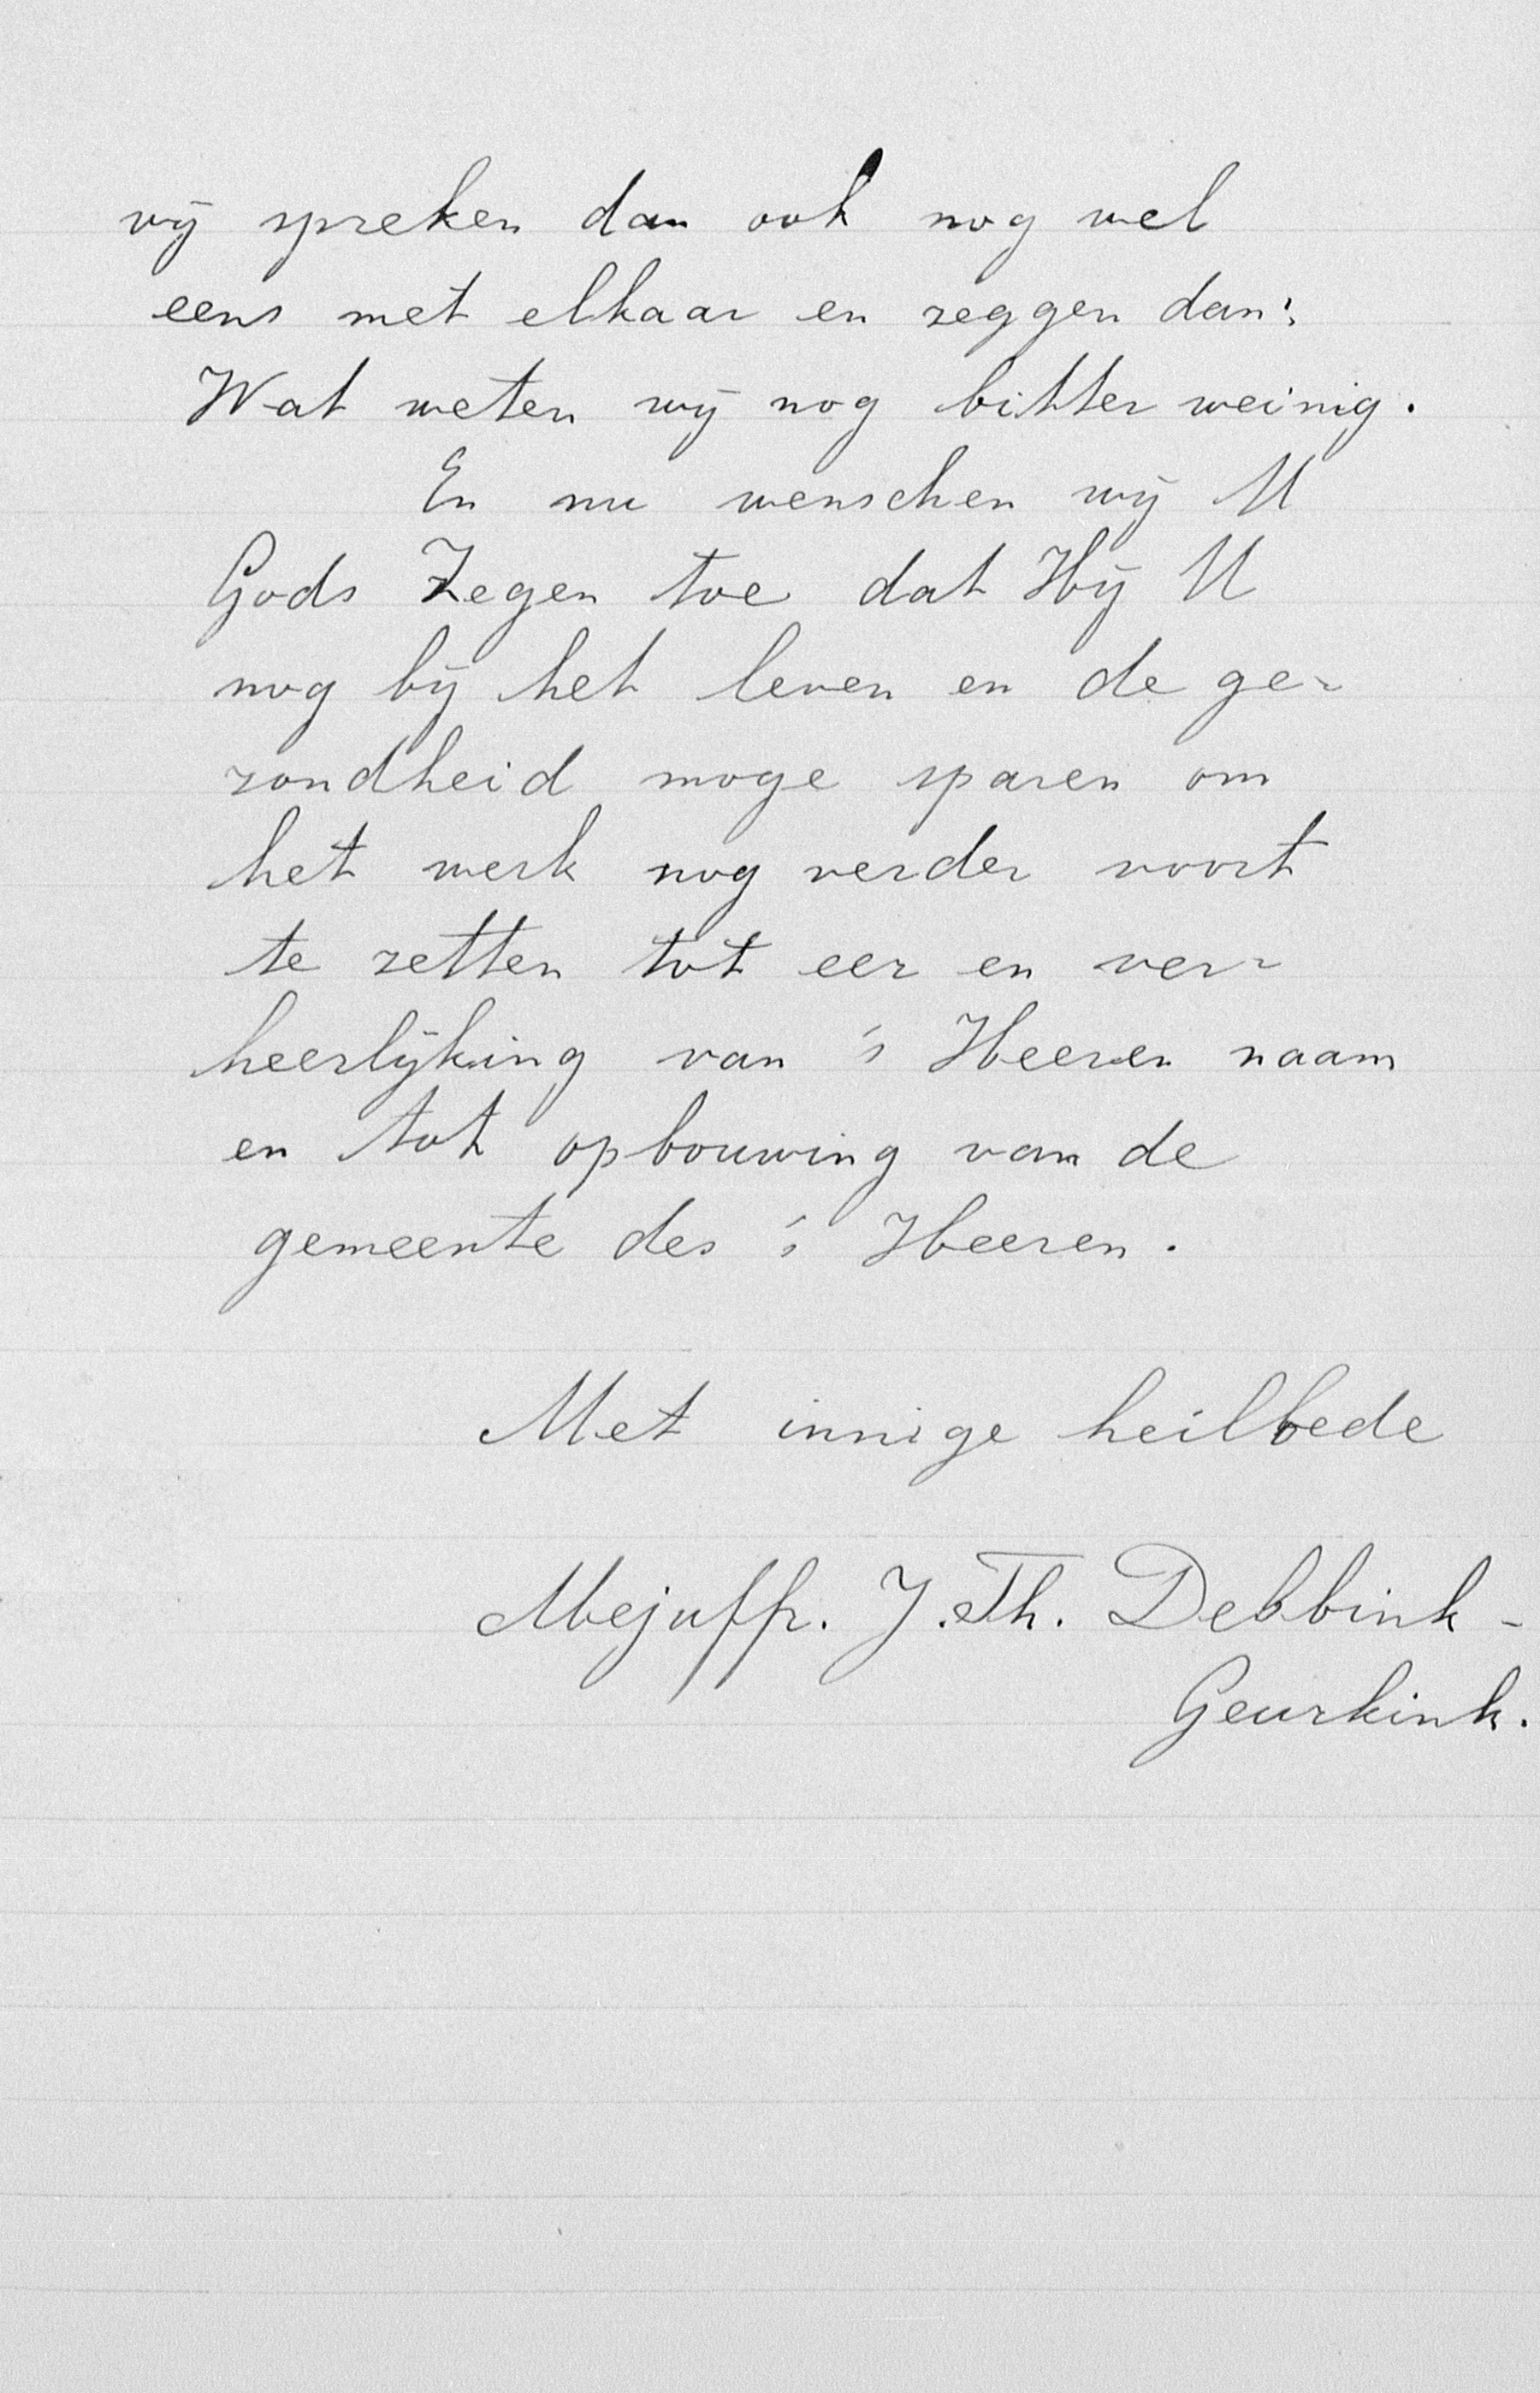 wij spreken dan ook nog wel
eens met elkaar en zeggen dan:
Wat weten wij nog bitter weinig.
En nu wenschen wij U
Gods Zegen toe dat Hij U
nog bij het leven en de ge-
zondheid moge sparen om
het werk nog verder voort
te zetten tot eer en ver-
heerlijking van 's Heeren naam
en tot opbouwing van de
gemeente des 's Heeren.
Met innige heilbede
Mejuffr. J. Th. Debbink -
Geurkink.